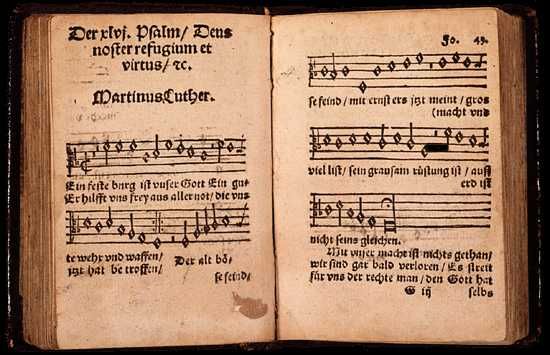 Der xlvj. Psalm / Deus
noster refugium et
virtus / ⁊c.
Martinus Luther.
Ein feste burg ist vnser Gott Ein gu⸗
Er hilfft vns frey aus aller not / die vns
te wehr vnd waffen /
jtzt hat be troffen /
Der alt bö⸗
se feind /
Fo. 43.
se feind / mit ernst ers jtzt meint / gros
(macht vnd
viel list / sein grausam rüstung ist / auff
erd ist
nicht seins gleichen.
Mit vnser macht ist nichts gethan /
wir sind gar bald verloren / Es streit
für vns der rechte man / den Gott hat
G iij selbs